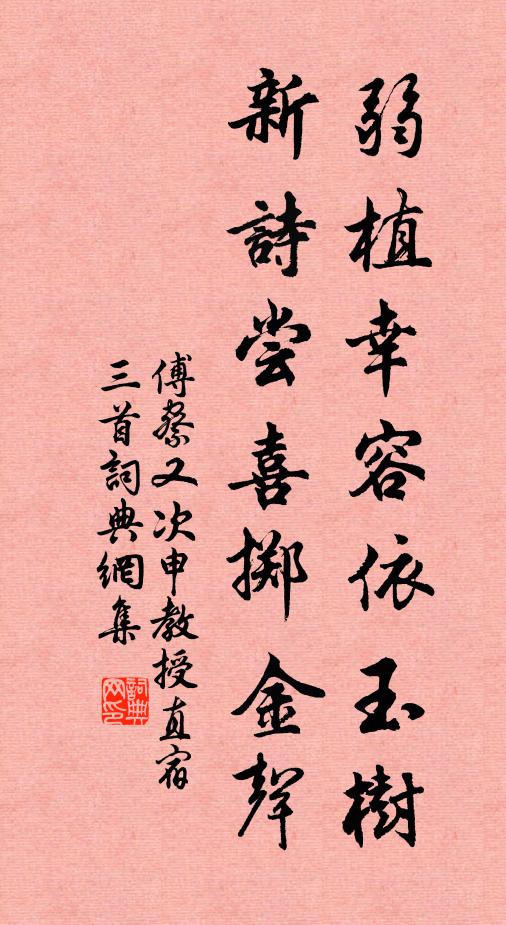 弱植幸容依玉樹
新詩尝喜掷金聲
傅察又次申教授直宿
三首詞典網集
詞典网印